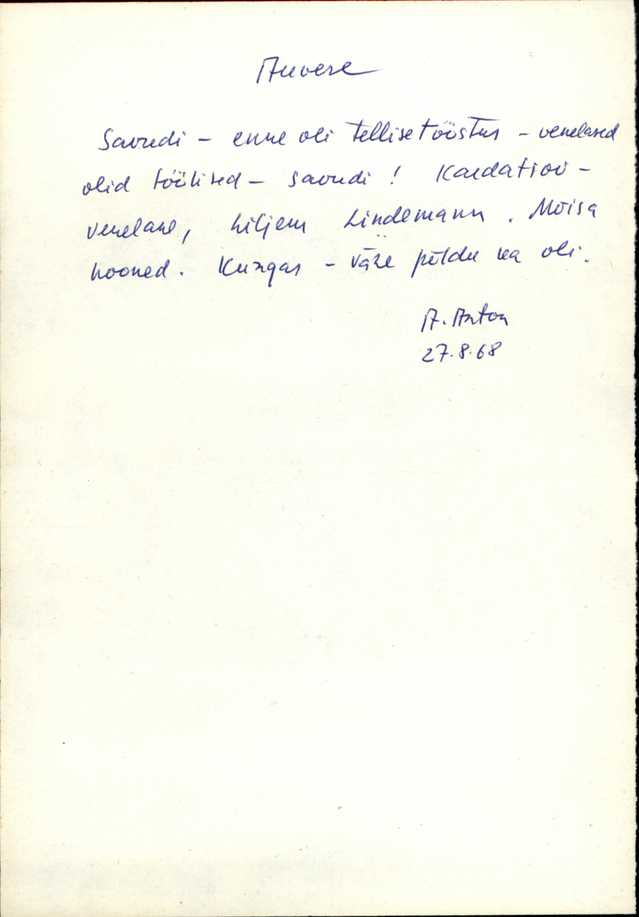 Auvere
Savudi – enne oli tellisetööstus – venelased
olid töölised – savudi! Kardatsov –
venelane, hiljem Lindemann. Mõisa
hooned. Kungas – väke põldu ka oli.
A. Anton
27.8.68